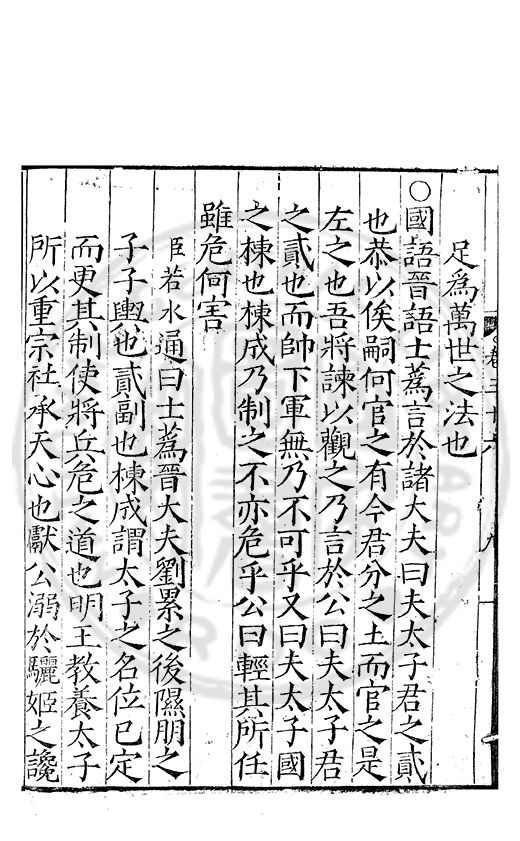 足為萬世之法也
○國語晉語士蒍言於諸大夫曰夫太子君之貳
也恭以俟嗣何官之有今君分之土而官之是
左之也吾將諫以觀之乃言於公曰夫太子君
之貳也而帥下軍無乃不可乎又曰夫太子國
之棟也棟成乃制之不亦危乎公曰輕其所任
雖危何害
臣若水通曰士蒍晉大夫劉累之後隰朋之
子子輿也貳副也棟成謂太子之名位已定
而更其制使將兵危之道也明王教養太子
所以重宗社承天心也獻公溺於驪姬之讒